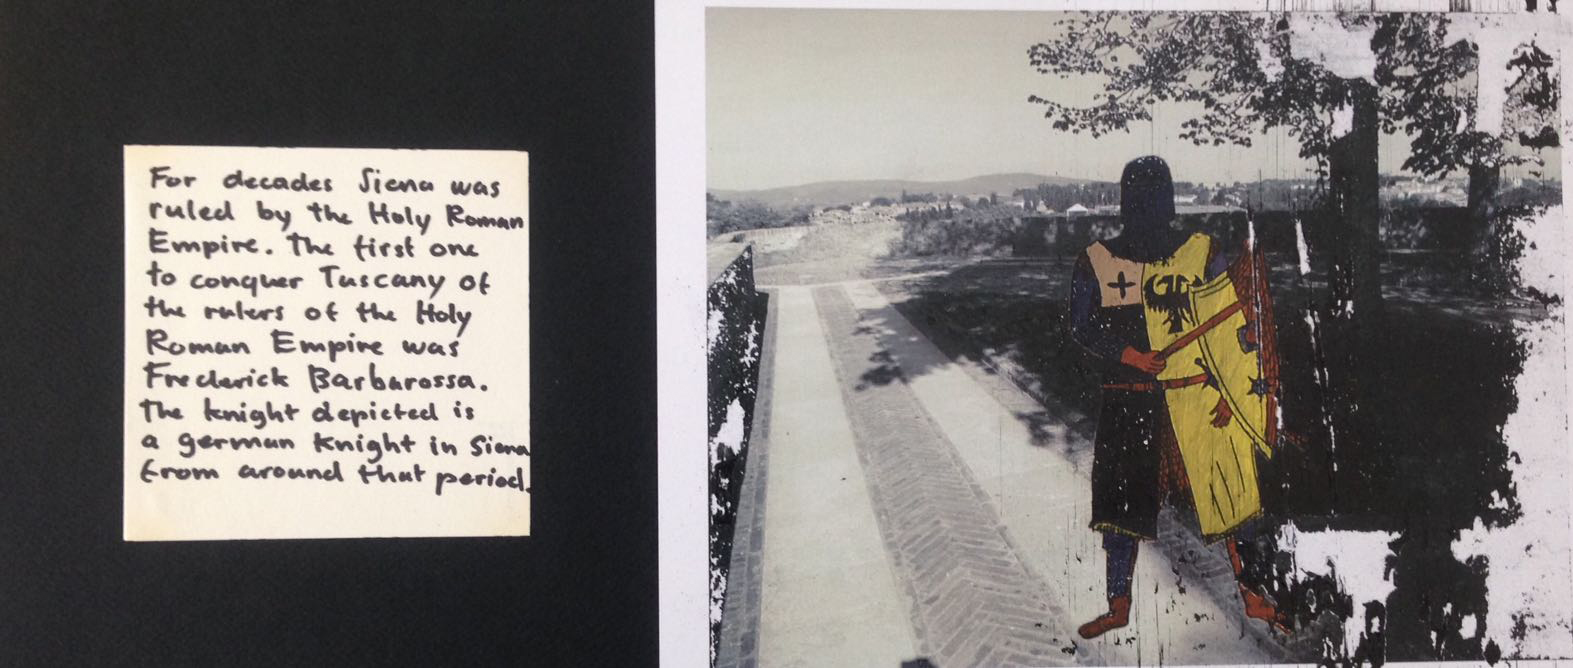 For decades Siena was
ruled by the Holy Roman
Empire. The first one
to conquer Tuscany of
the rulers of the Holy
Roman Empire was
Frederick Barbarossa.
The knight depicted is
a german knight in Siena
from around that period.